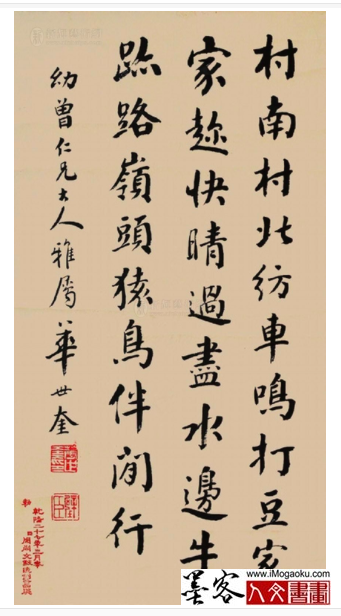 村南村北紡車鳴打豆家
家趂快晴過盡水邊牛
跡路嶺頭猿鳥伴閒行
幼曾仁兄大人雅屬 華世奎
墨客
www.iMogaoku.com
人文書畫